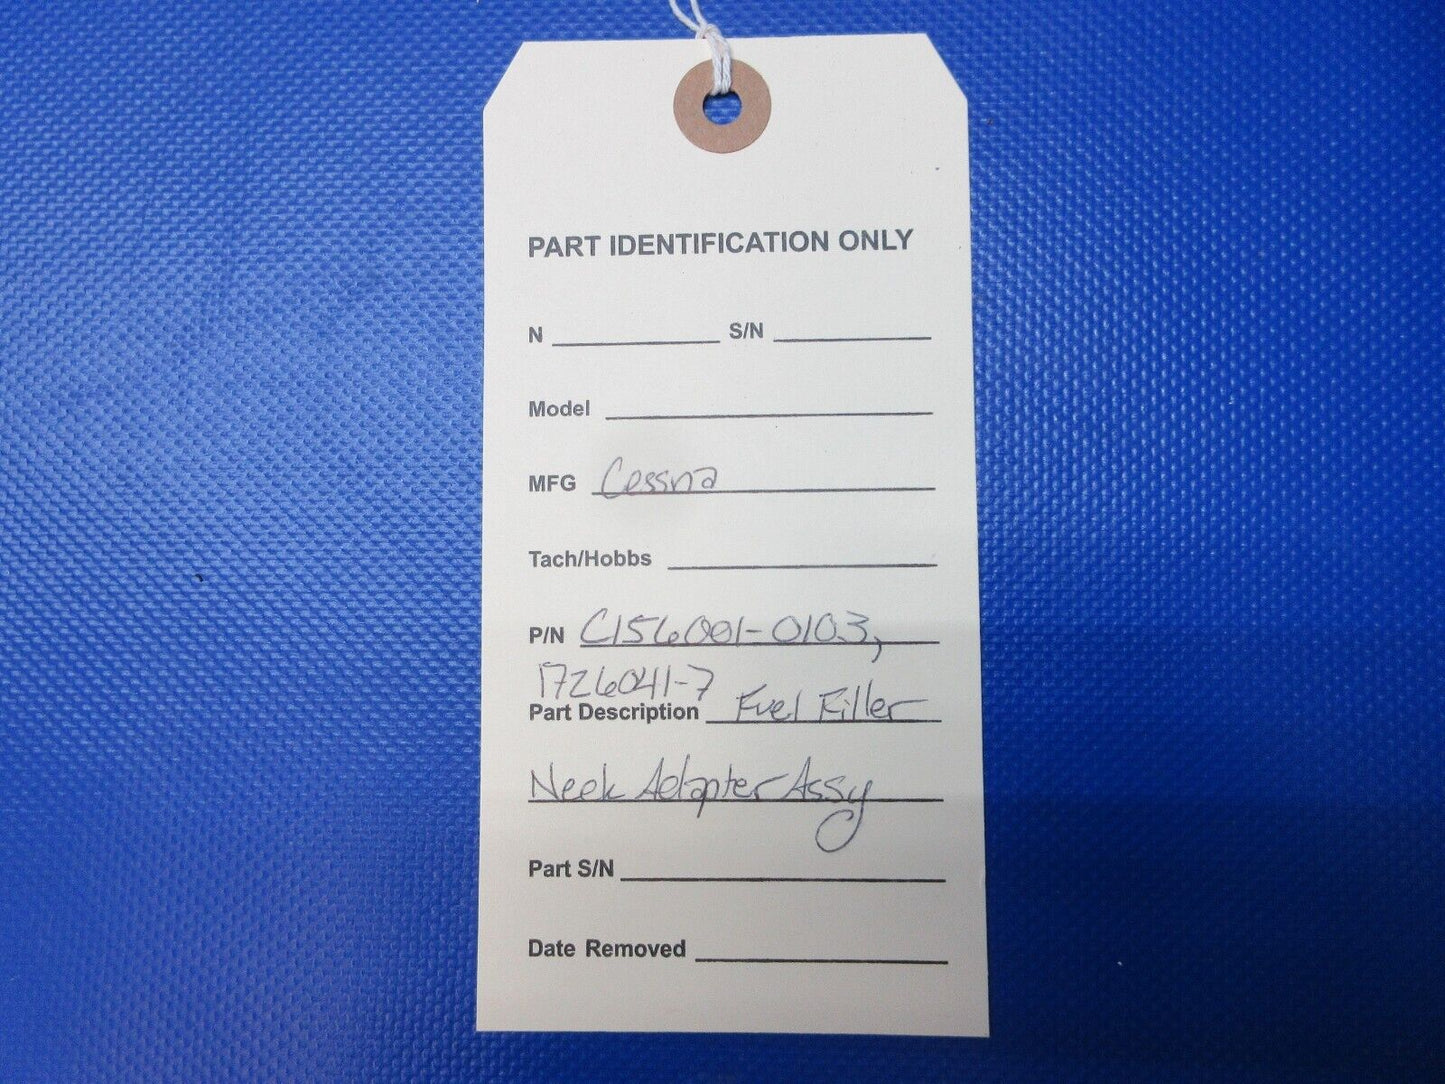 PART IDENTIFICATION ONLY
N S/N
Model
MFG Cessna
Tach/Hobbs
P/N C156001-0103,
1726041-7
Part Description Fuel Filler
Neck Adapter Assy
Part S/N
Date Removed